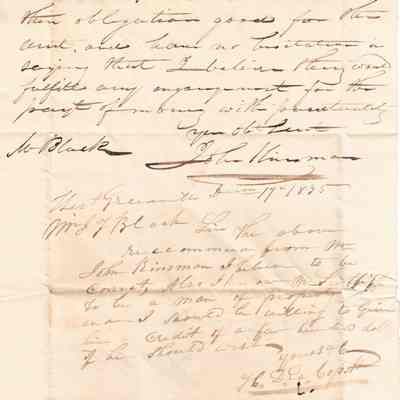 their obligation good for the
amt. and have no hesitation in
saying that I believe they would
fulfill any engagement for the
payt of money with punctuality
Your Ob Servt
Mr Black John Kinsman
West Greenville June 17th 1835
Black Sir the above
recommend from Mr
John Kinsman I believe to be
Correct Also I
to be a man of property
and I should be willing to give
him Credit of a few hundred dol
if he should wish
Yours &c